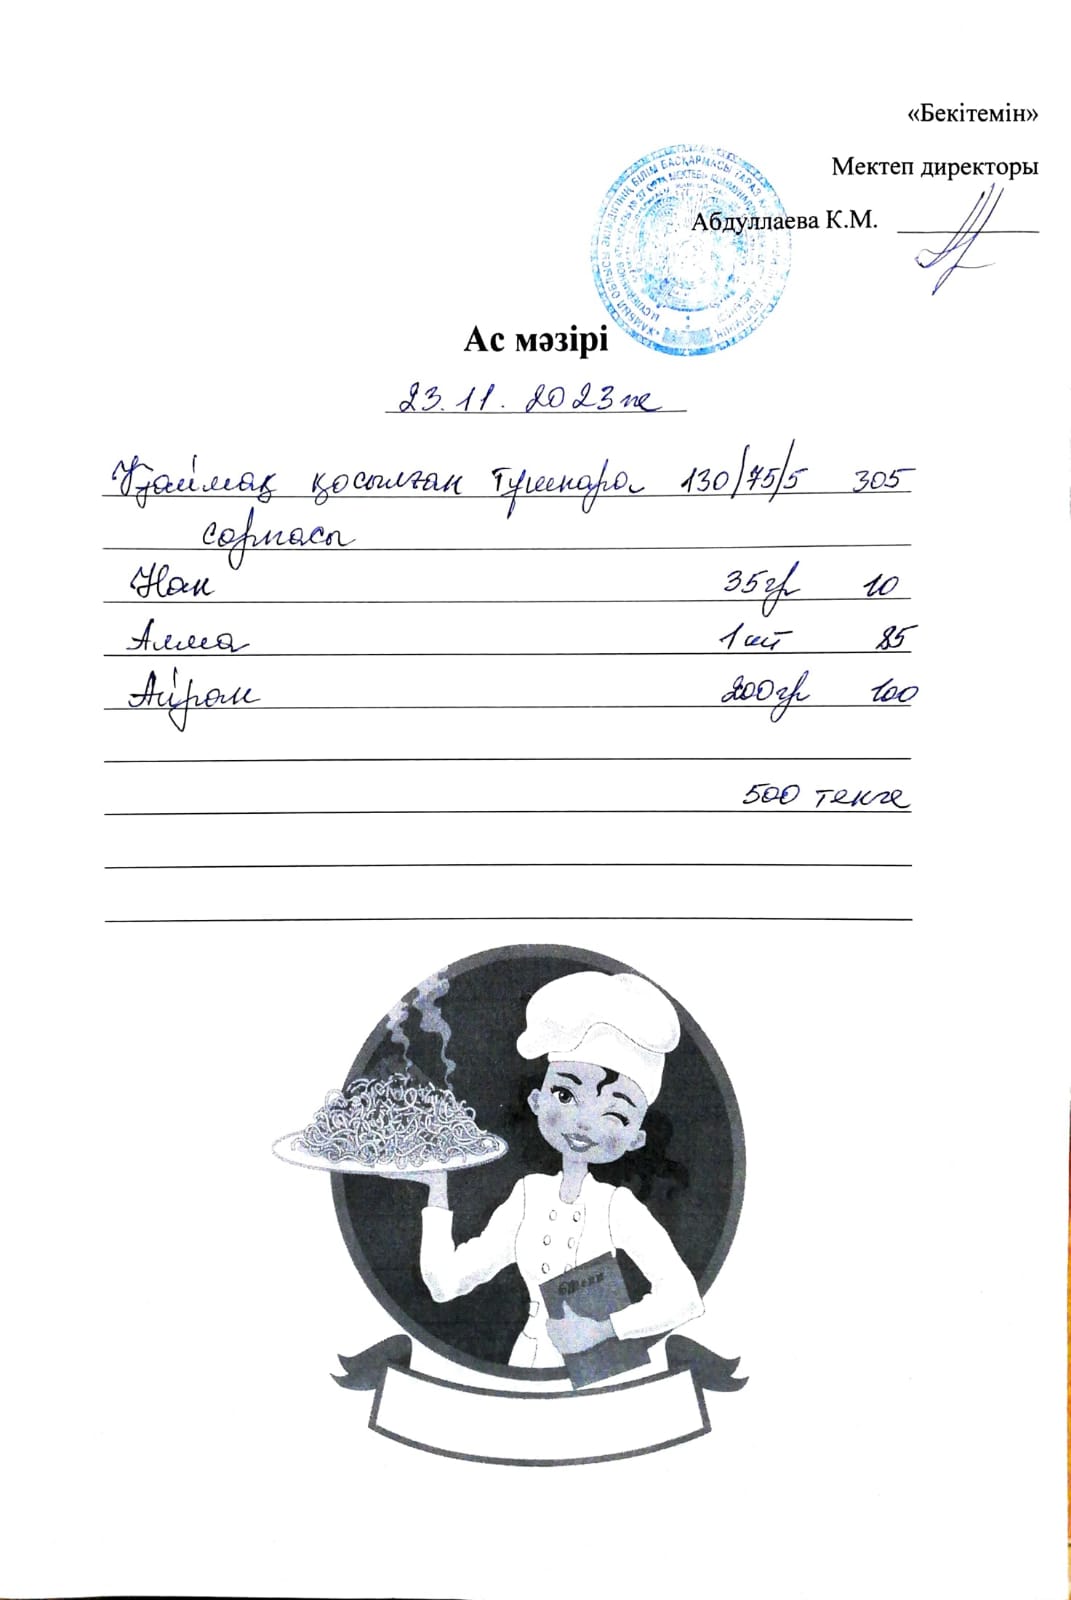 «Бекітемін»
Мектеп директоры
Абдуллаева К.М.
Ас мәзірі
23.11.2023ж
Қаймақ қосылған тұшпара 130/75/5 305
сорпасы
Нан 35гр 10
Алма 1шт 85
Айран 200гр 100
500 теңге
Меню